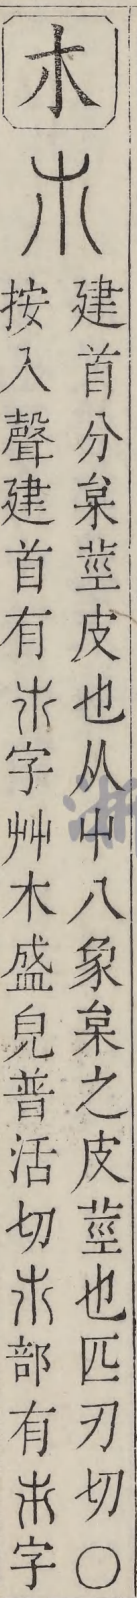 朩
建首分枲莖皮也从屮八象枲之皮莖也匹刃切〇
按入聲建首有𣎵字艸木盛皃普活切𣎵部有𠂔字